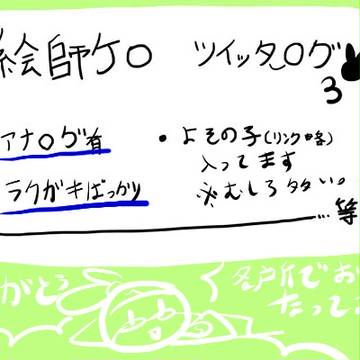 絵師ケロ ツイッタログ
3
アナログ有
ラクガキばっかり
• よその子(リンク略)
入ってます
※むしろ多い。
...等
がとう
各戸斤でお
たって